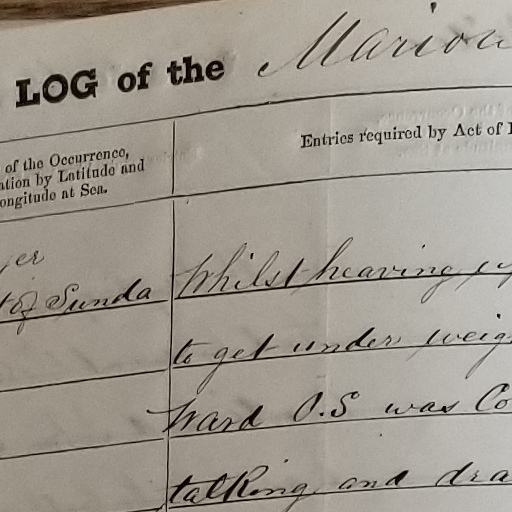 LOG of the Marion
of the Occurrence,
ation by Latitude and
ongitude at Sea.
Entries required by Act of
jer
t of Sunda
Whilst heaving
to get under weig
ward O.S was Co
talking and dra